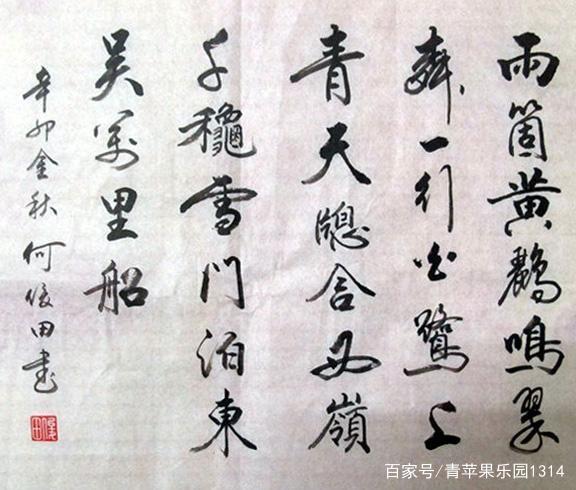 兩箇黄鸝鳴翠
柳一行白鷺上
青天牕含西嶺
千龝雪門泊東
吴萬里船
辛卯金秋何俊田書
百家号/青苹果乐园1314